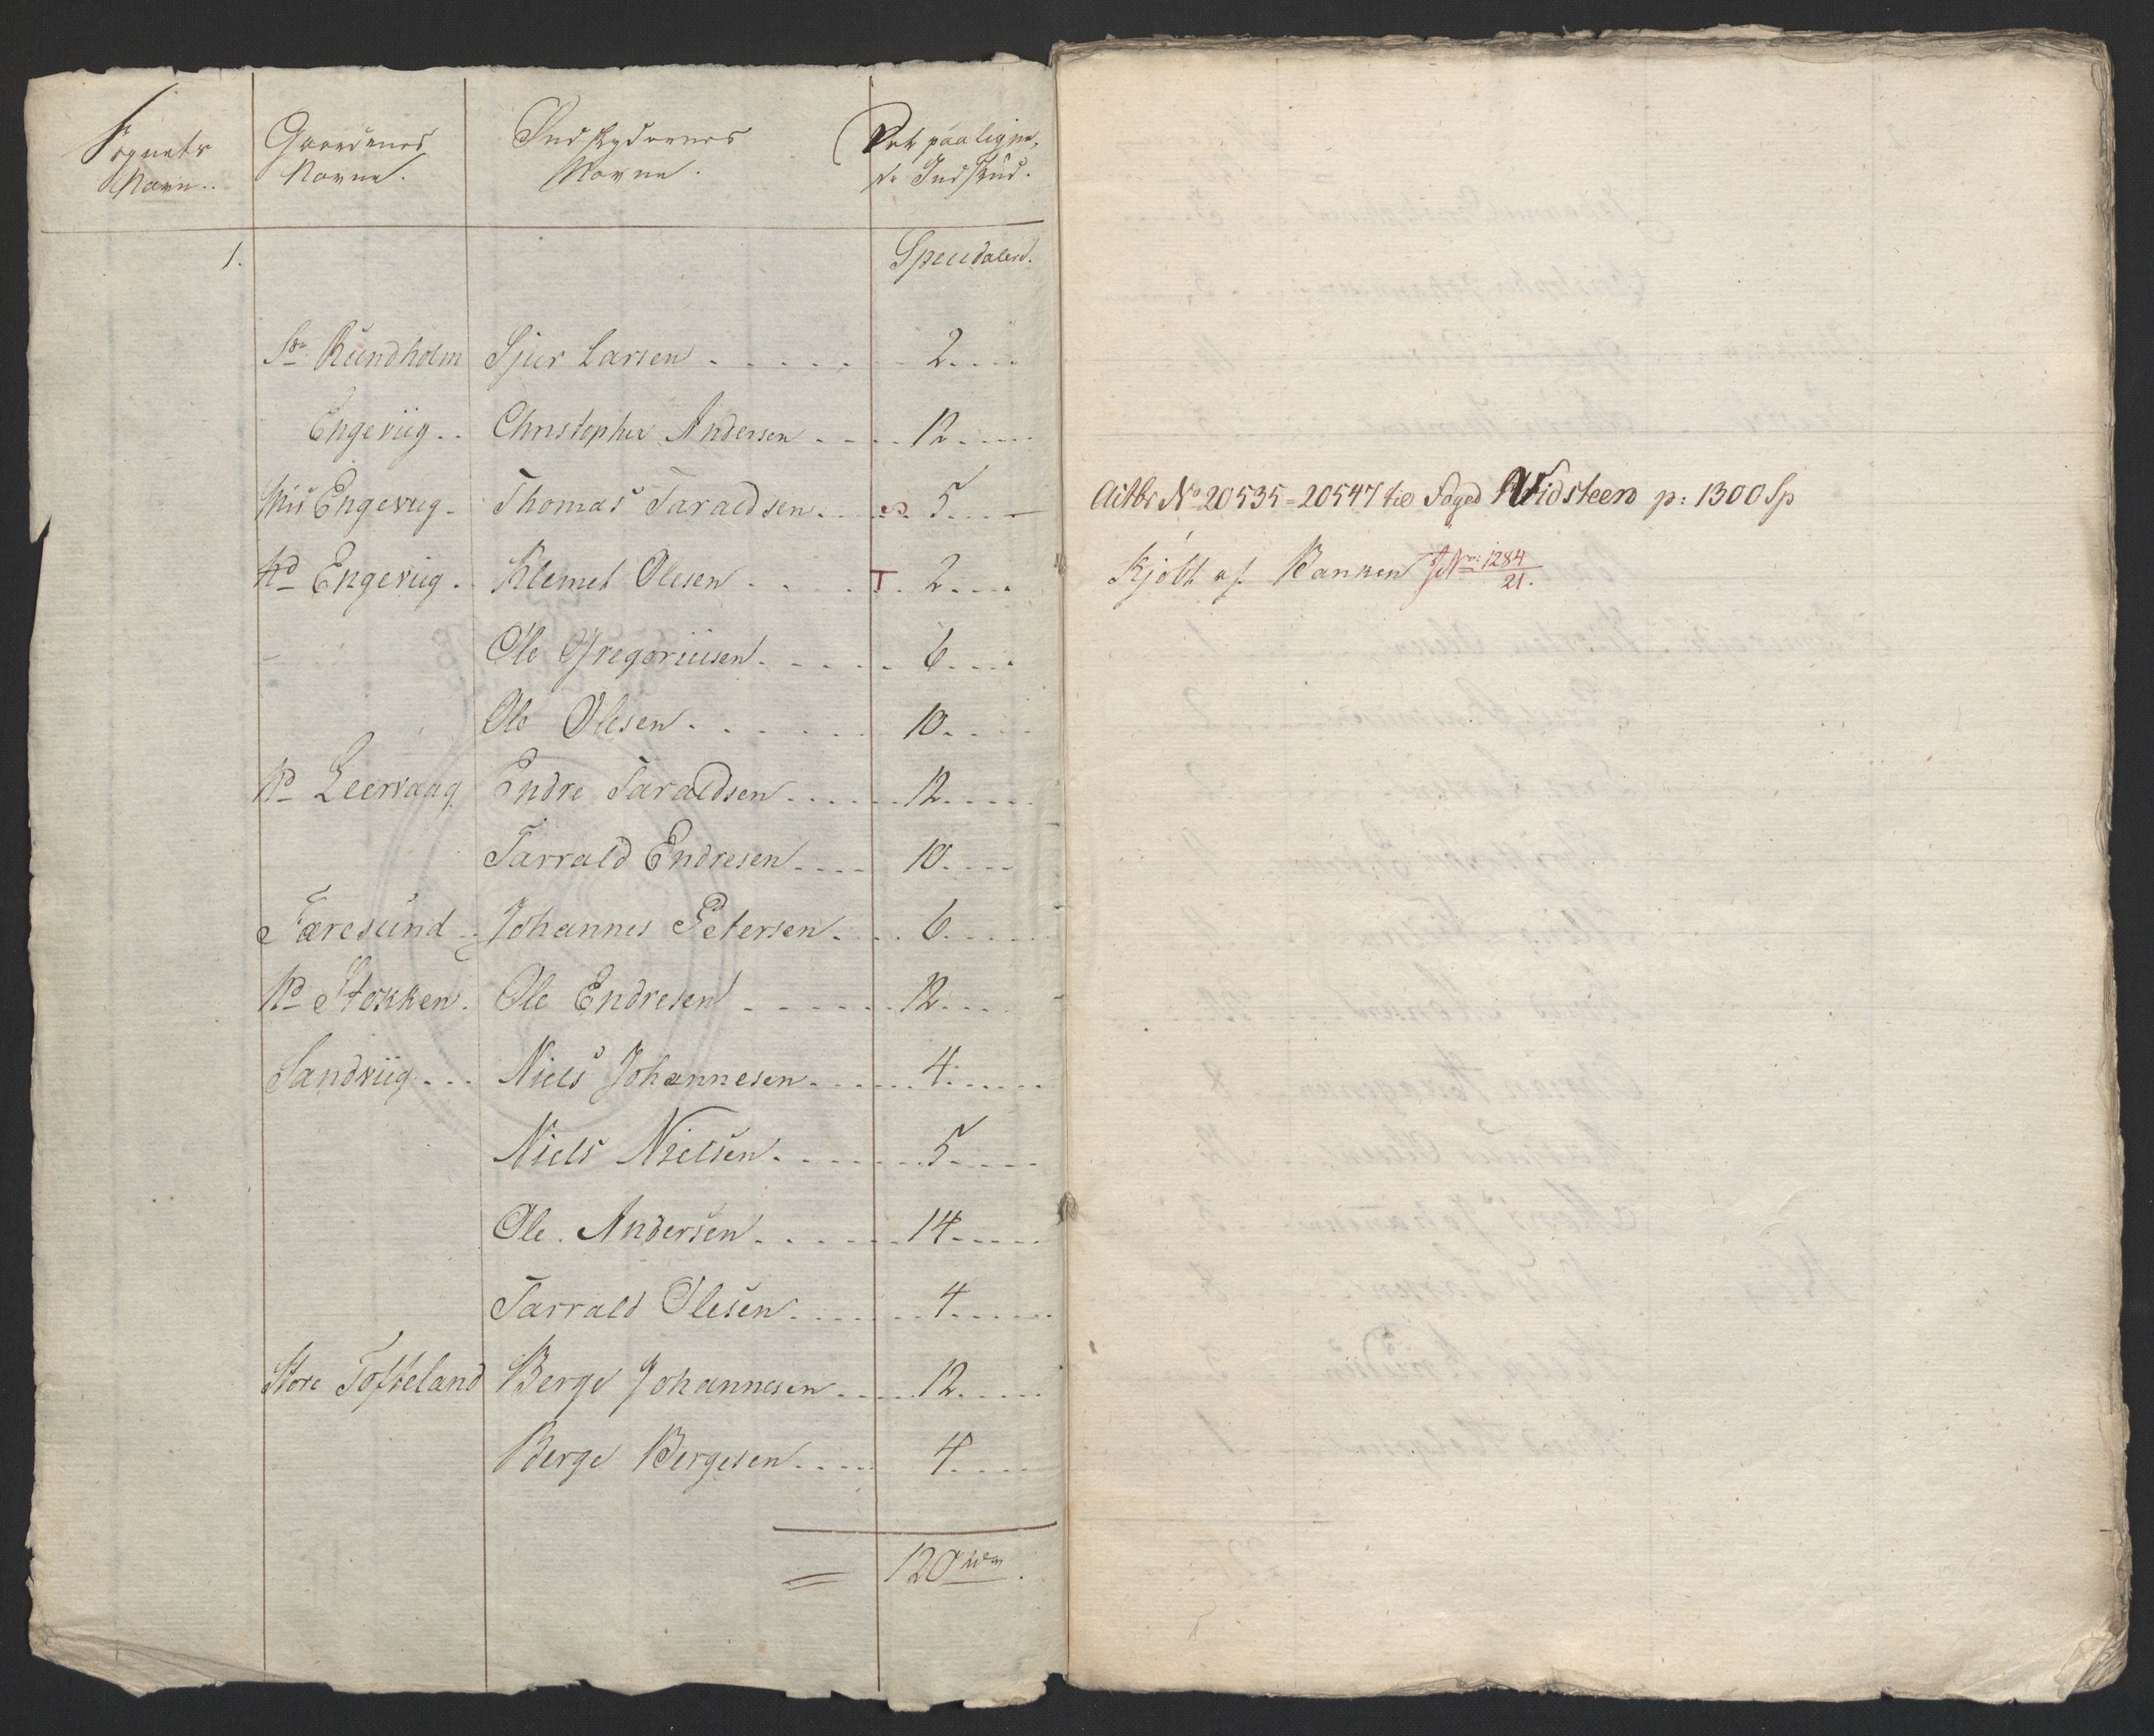 Sognets Navn.. Gaardenes Navne. Indskydernes Navne. Det paalignede Indskud.
1. Speciedaler.
Sr Rundholm Sjur Larsen . . . . . 2. . . .
Engeviig . . Christopher Andersen . . . . 12. . . .
Mis Engeviig . Thomas Taraldsen . . . 5. . . .
Nd Engeviig . Klemet Olesen . . . T. 2. . . .
Ole Gregoriusen . . . . . 6. . . .
Ole Olesen . . . . . . 10. . . .
Nd Leervaag Endre Taraldsen . . . . . 12. . . .
Tarrald Endresen . . . . 10. . . .
Færesund . . Johannes Petersen . . . . 6. . . .
Nd Stokken . Ole Endresen . . . . . 12. . . .
Sandviig . . . Niels Johannesen . . . . . 4. . . .
Niels Nielsen . . . . . . 5. . . .
Ole. Andersen . . . . . . 14. . . .
Tarrald Olesen . . . . . . 4. . . .
Store Tofteland Berge Johannesen . . . . 12. . . .
Berge Bergesen . . . . 4. . . .
= 120
Actbr No 20535 = 20547 til Foged Widsteen p: 1300 Sp
Kjöbt af Banken J No: 1284/21.